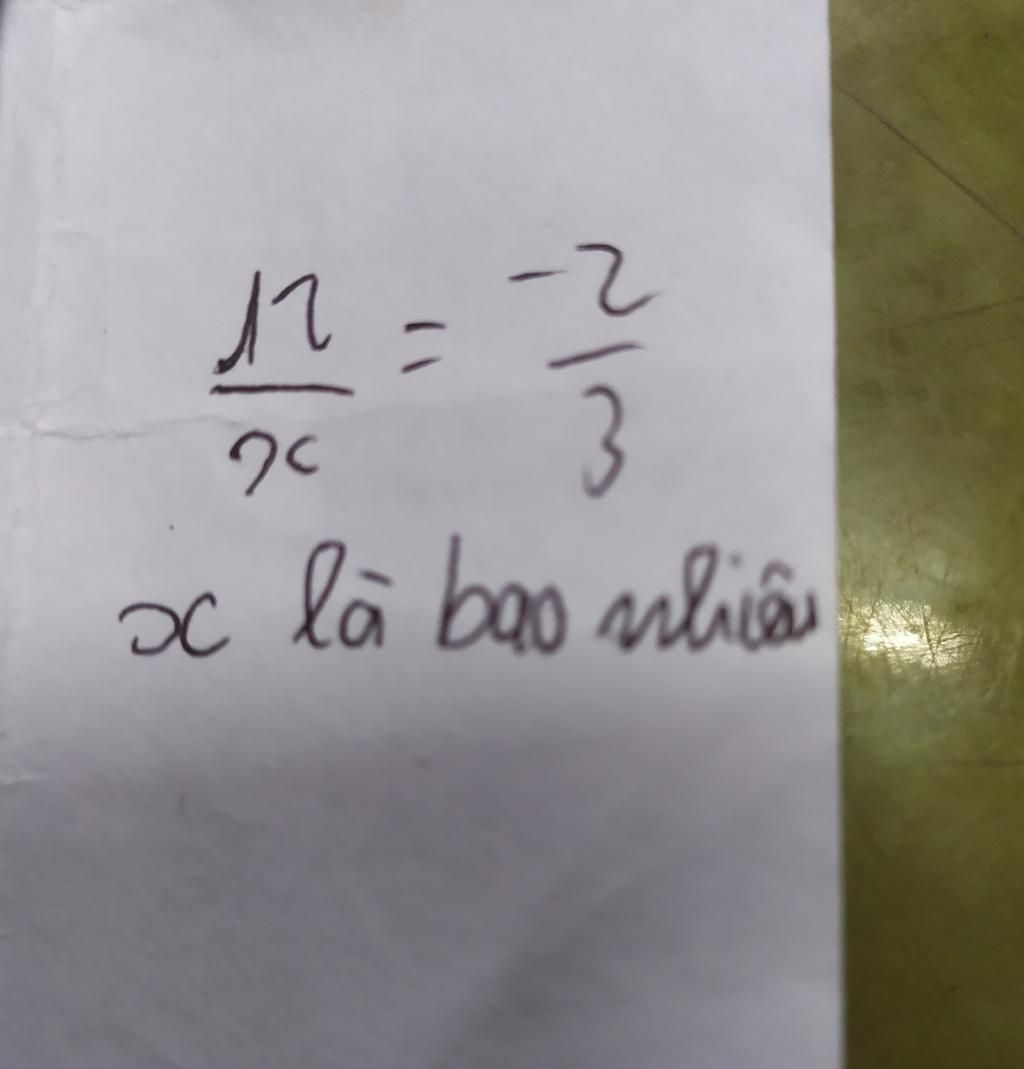 12/x = -2/3
x là bao nhiêu